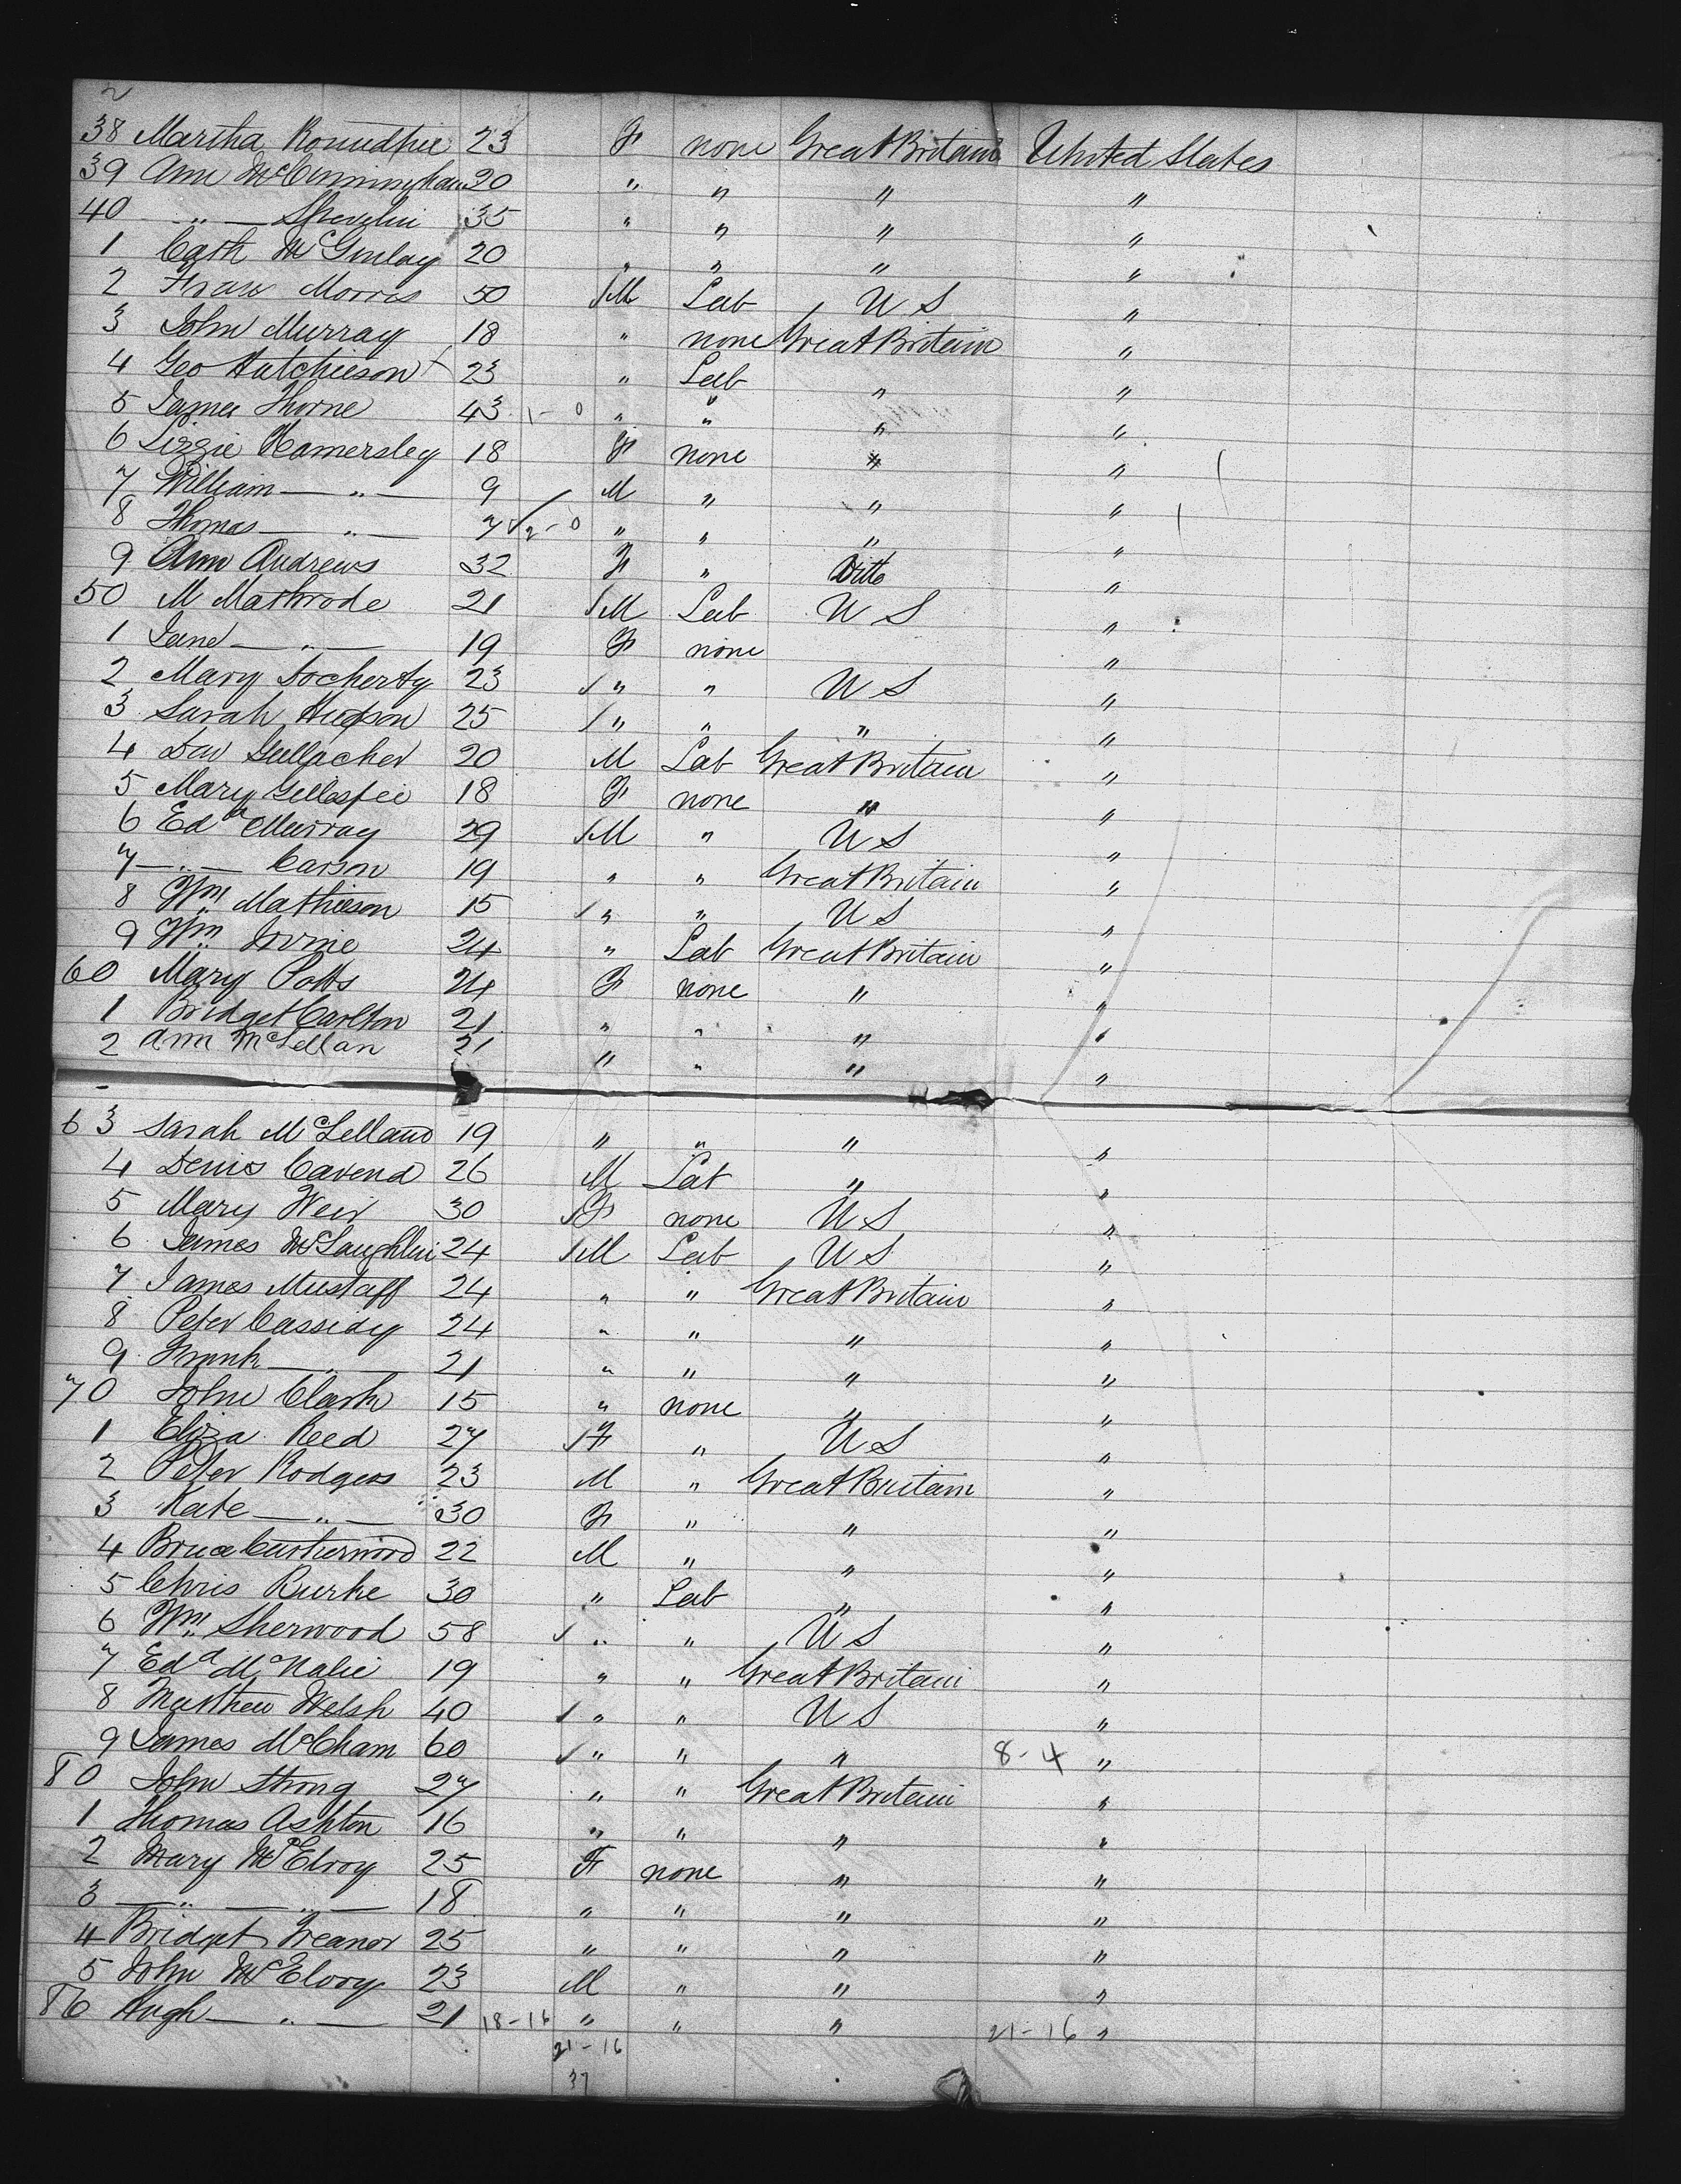 2
38 Martha Roundtree 23 F none Great Britain United States
39 Ann McCunningham 20 " " " "
40 " Shevlin 35 " " " "
1 Cath McGinlay 20 " " " "
2 Fran Morris 50 M Lab U S "
3 John Murray 18 " none Great Britain "
4 Geo Hutchieson 23 " Lab " "
5 James Thorne 43 1-0 " " " "
6 Lizzie Hamersley 18 F none " "
7 William " 9 M " " "
8 Thomas " 7 2-0 " " " "
9 Ann Andrews 32 F " Ditto "
50 M Mathrode 21 M Lab U S "
1 Jane " 19 F none "
2 Mary Docherty 23 " " U S "
3 Sarah Hudson 25 " " " "
4 Dav Gallacher 20 M Lab Great Britain "
5 Mary Gillespie 18 F none " "
6 Edd Murray 29 M " U S "
7 " Carson 19 " " Great Britain "
8 Wm Mathieson 15 " " U S "
9 Wm Irvine 24 " Lab Great Britain "
60 Mary Potts 24 F none " "
1 Bridget Carlton 21 " " " "
2 Ann McLellan 21 " " " "
63 Sarah McLelland 19 " " " "
4 Denis Cavend 26 M Lab " "
5 Mary Weir 30 F none U S "
6 James McLaughlin 24 M Lab U S "
7 James Mustaff 24 " " Great Britain "
8 Peter Cassidy 24 " " " "
9 Frank " 21 " " " "
70 John Clark 15 " none " "
1 Eliza Reed 27 F " U S "
2 Peter Rodgers 23 M " Great Britain "
3 Kate " 30 F " " "
4 Bruce 22 M " " "
5 Chris Burke 30 " Lab " "
6 Wm Sherwood 58 " " U S "
7 Edd McNalie 19 " " Great Britain "
8 Matthew Welsh 40 " " U S "
9 James McCham 60 " " " 8-4 "
80 John Strong 27 " " Great Britain "
1 Thomas Ashton 16 " " " "
2 Mary McElroy 25 F none " "
3 " " 18 " " " "
4 Bridget Treanor 25 " " " "
5 John McElroy 23 M " " "
86 Hugh " 21 18-16 " " " 21-16 "
21-16
37